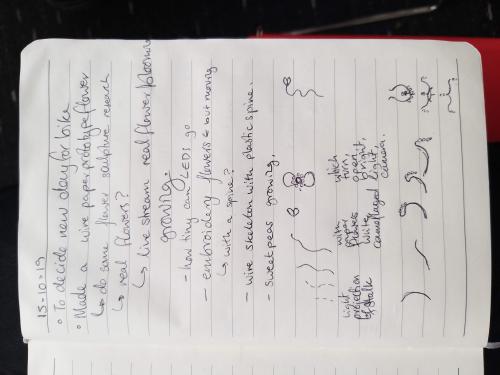 15-10-19
• To decide new day for bike
• Made a wire paper prototype flower
↳ do some flower sculpture research
↳ real flowers?
↳ live stream real flower/blooming
growing.
- how tiny can LEDs go
- embroidery flowers & but moving
↳ with a spine?
- wire skeleton with plastic spine.
- Sweet peas growing.
Light projection of stalk
with paper flowers
white,
camouflaged
which turn, open
bright,
light,
camera.